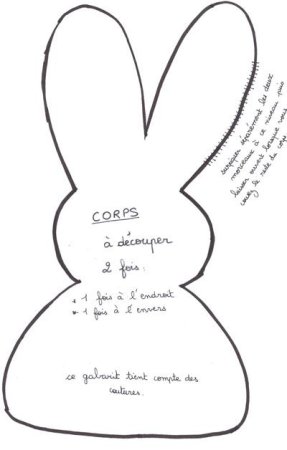 surpiquer séparément les deux
morceaux à ce niveau puis
laisser ouvert lorsque vous
cousez le reste du corps
CORPS
à découper
2 fois:
* 1 fois à l'endroit
* 1 fois à l'envers
ce gabarit tient compte des
coutures.